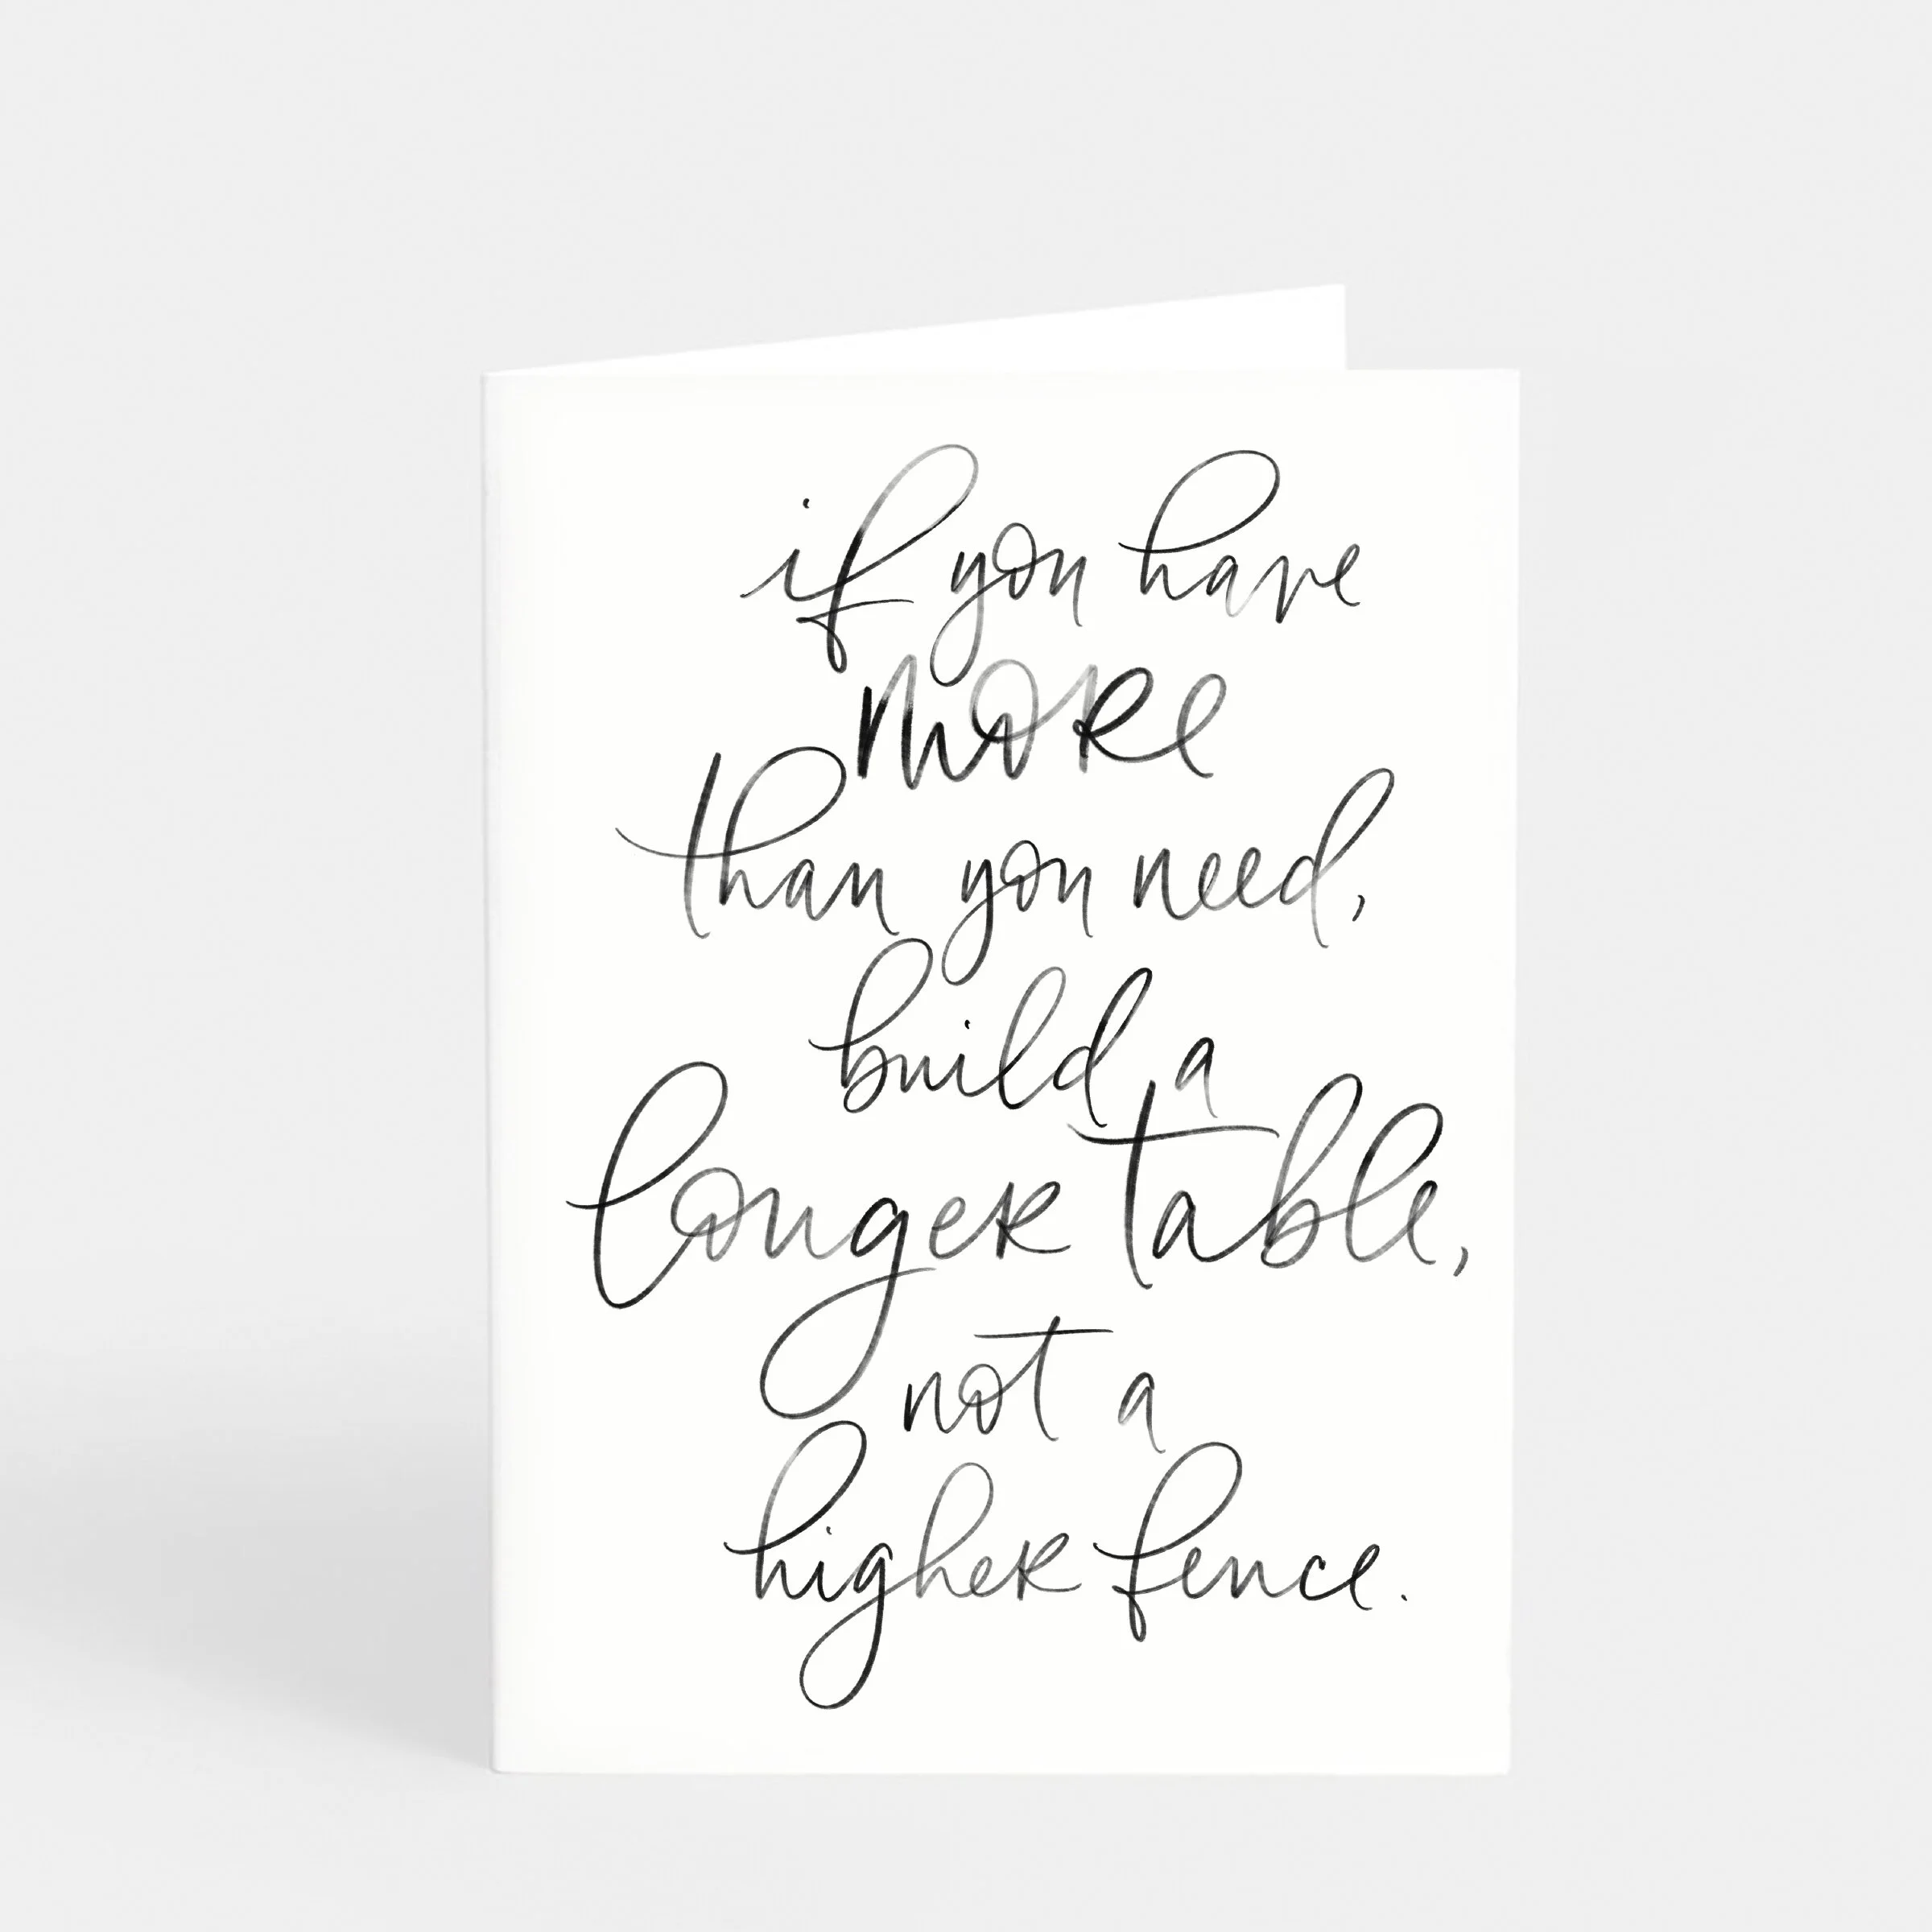 if you have
more
than you need,
build a
longer table,
not a
higher fence.